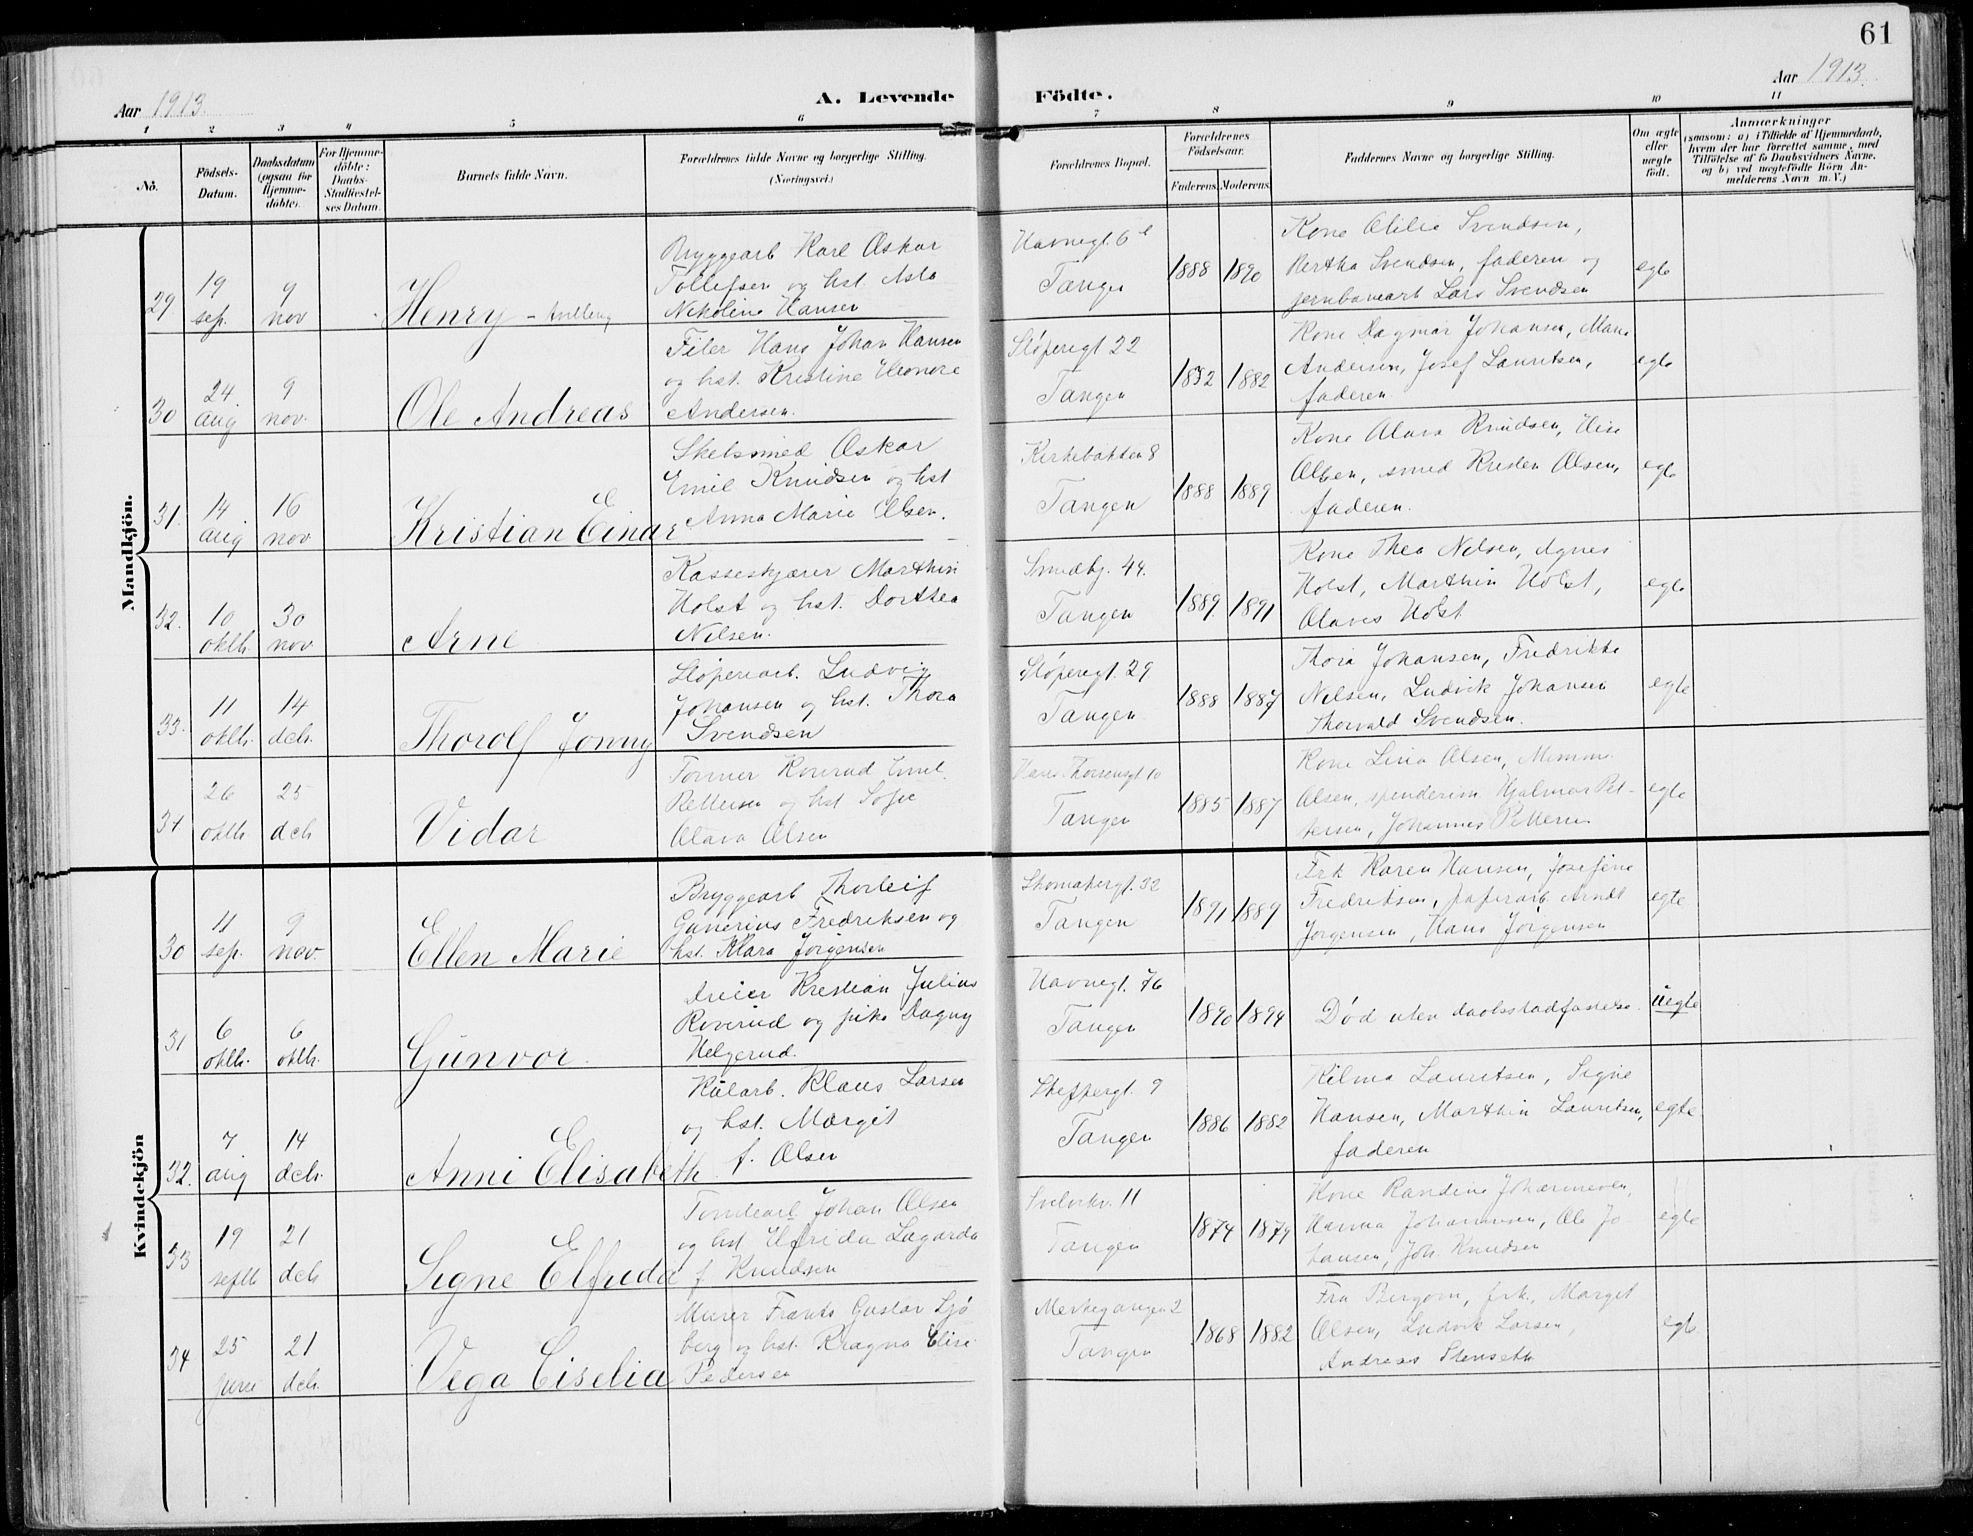 61
Aar 1913.
A. Levende Födte.
Aar 1913.
1 2 3 4 5 6 7 8 9 10 11
No.
Födsels-
Datum.
Daabsdatum
(ogsaa for
Hjemme-
döbte).
For Hjemme-
döbte:
Daabs-
Stadfæstel-
ses Datum.
Barnets fulde Navn.
Forældrenes fulde Navne og borgerlige Stilling.
(Næringsvei.)
Forældrenes Bopæl.
Forældrenes
Födselsaar.
Faderens. Moderens.
Faddernes Navne og borgerlige Stilling.
Om ægte
eller
uægte
födt.
Anmærkninger
(saasom: a) i Tilfælde af Hjemmedaab,
hvem der har forrettet samme, med
Tilföielse af to Daabsvidners Navne,
og b) ved uægtefödte Börn An-
melderens Navn m. V.)
Mandkjön.
29. 19 sep. 9 nov
Henry
Bryggearb Karl Oskar
Tollefsen og hst. Asta
Nikoline Hansen
Havnegt. 6
Tangen
1888 1890
Kone Otilie Svendsen,
Bertha Svendsen, faderen og
jernbanearb Lars Svendsen
egte
30 24. aug 9 nov.
Ole Andreas
Filer Hans Johan Hansen
og hst. Kristine Eleonore
Andersen.
Støperigt 22
Tangen
1882
Kone Dagmar Johansen, Marie
Andersen, Josef Lauritsen,
faderen
egte
31. 14 aug 16 nov
Kristian Einar
Oskar
Emil Knudsen og hst
Anna Marie Olsen.
Kirkebakken 8
Tangen
1888 1889
Kone Olava Knudsen, Elise
Olsen, smed Kristen Olsen,
faderen.
egte
32. 10 oktb. 30 nov
Arne
Kasseskjærer Marthin
Holst og hst. Dorthea
Nilsen.
Smedbj. 44.
Tangen
1889 1891
Kone Thea Nilsen, Agnes
Holst, Marthin Holst,
Olaves Holst
egte
33. 11 oktb. 14 deb.
Thorolf Jonny
Støperiarb. Ludvig
Johansen og hst. Thora
Svendsen
Støperigt. 29
Tangen
1888 1887
Thora Johansen, Fredrikke
Nilsen, Ludvik Johansen
Thorvald Svendsen.
egte
34 26 oktb 25 deb
Vidar
Former Konrad Emil
Pettersen og hst Sofie
Olava Olsen
Hans Thorsensgt 10
Tangen
1885 1887
Kone Lina Olsen, Mimmi
Olsen, Hjalmar Pet-
tersen, Johannes Pettersen
egte
Kvindekjön
30 11 sep. 9 nov.
Ellen Marie
Bryggearb Thorleif
Gunerius Fredriksen og
hst. Klara Jørgensen
32
Tangen
1891 1889
Frk Karen Hansen, Josefine
Fredriksen, papirarb. Arndt
Jørgensen, Hans Jørgensen
egte
31 6 oktb. 6 oktb.
Gunvor
Dreier Kristian Julius
Roverud og pike Dagny
Helgerud.
Havnegt. 76
Tangen
1890 1894
Død uten daabsstadfæstelse.
uegte
32. 7 aug 14 deb.
Anni Elisabeth
Klaus Larsen
og hst. Margit
f. Olsen
9
Tangen
1886 1882
Hilma Lauritsen, Signe
Hansen, Marthin Lauritsen,
faderen
egte
33 19 septb 21 deb
Signe Elfrida
Tomtearb Johan Olsen
og hst Elfrida Lagarda
f Knudsen
Svelvikv. 11
Tangen
1874 1879
Kone Randine Johannesen,
Hanna Johannesen, Ole Jo
hansen, Joh. Knudsen
egte
34 25 juni 21 deb.
Vega Ciselia
Murer Frants Gustav Sjö
berg og hst. Ragna Elise
Pedersen
2
Tangen
1868 1882
Fru Bergom, frk. Margit
Olsen, Ludvik Larsen,
Andreas Stenseth
egte